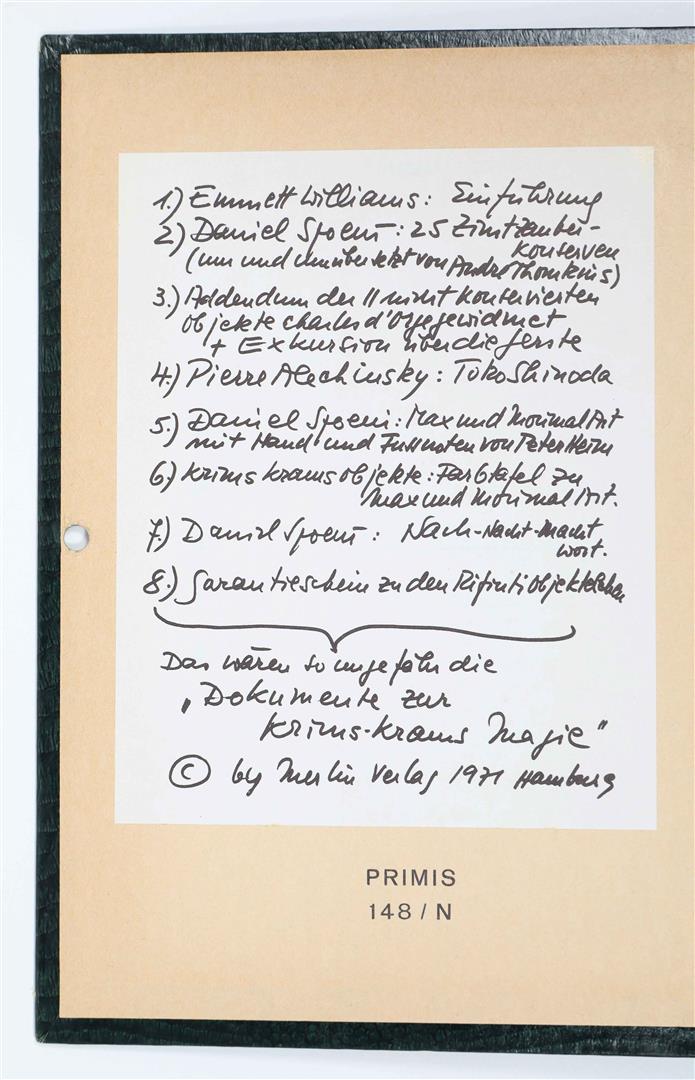 1.) Emmett Williams: Einführung
2.) Daniel Spoerri: 25 Zimtzauber-
konserven
(um und umübersetzt von Andre Thomkins)
3.) Addendum der 11 nicht konservierten
objekte charles d'Orge gewidmet
+ Exkursion über die gerste
4.) Pierre Alechinsky: Toko Shinoda
5.) Daniel Spoerri: Max und Morimal Art
mit Hand und Fussnoten von Peter Heim
6.) Krims krams objekte: Farbtafel zu
Max und Morimal Art.
7.) Daniel Spoerri: Nach-Nacht-Macht
wort.
8.) Garantieschein zu den
Das wären so ungefähr die
„Dokumente zur
Krims-krams Magie"
© by Merlin Verlag 1971 Hamburg
PRIMIS
148 / N